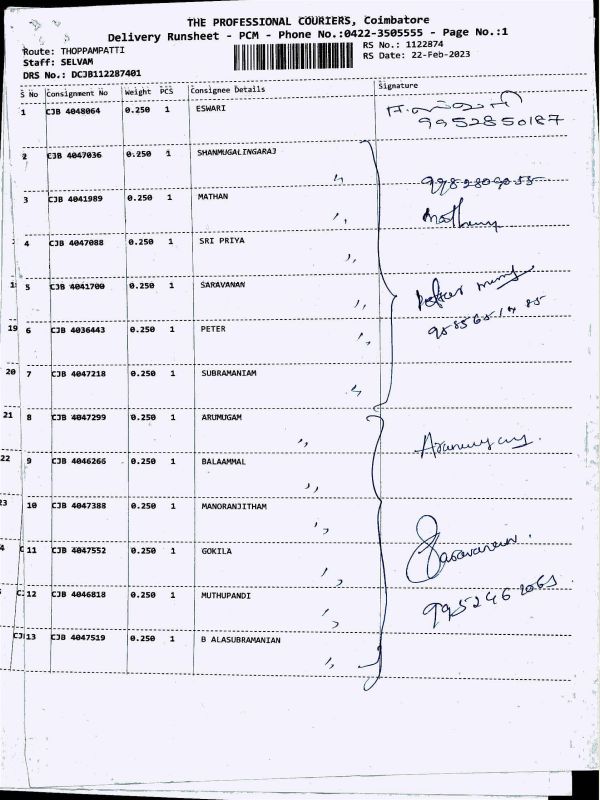 THE PROFESSIONAL COURIERS, Coimbatore
Delivery Runsheet - PCM - Phone No.:0422-3505555 - Page No.:1
Route: THOPPAMPATTI
RS No.: 1122874
Staff: SELVAM
RS Date: 22-Feb-2023
DRS No.: DCJB112287401
S No Consignment No Weight PCS Consignee Details Signature
1 CJB 4048064 0.250 1 ESWARI
9952850187
2 CJB 4047036 0.250 1 SHANMUGALINGARAJ
3 CJB 4041989 0.250 1 MATHAN
4 CJB 4047088 0.250 1 SRI PRIYA
5 CJB 4041700 0.250 1 SARAVANAN
19 6 CJB 4036443 0.250 1 PETER
20 7 CJB 4047218 0.250 1 SUBRAMANIAM
21 8 CJB 4047299 0.250 1 ARUMUGAM
22 9 CJB 4046266 0.250 1 BALAAMMAL
23 10 CJB 4047388 0.250 1 MANORANJITHAM
11 CJB 4047552 0.250 1 GOKILA
12 CJB 4046818 0.250 1 MUTHUPANDI
13 CJB 4047519 0.250 1 B ALASUBRAMANIAN